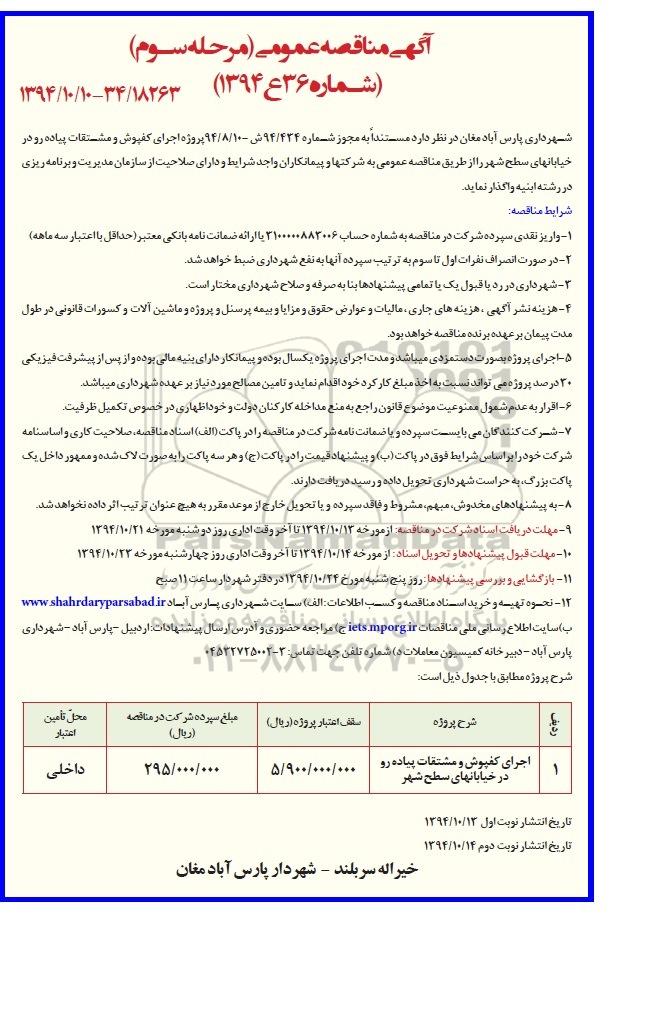 آگهی مناقصه عمومی (مرحله سوم)
(شماره ۳۶ع۱۳۹۴)
۳۴/۱۸۲۶۳-۱۳۹۴/۱۰/۱۰
شهرداری پارس آباد مغان در نظر دارد مستنداً به مجوز شماره ۹۴/۴۳۴ش -۹۴/۸/۱۰پروژه اجرای کفپوش و مشتقات پیاده رو در
خیابانهای سطح شهر را از طریق مناقصه عمومی به شرکتها و پیمانکاران واجد شرایط و دارای صلاحیت از سازمان مدیریت و برنامه ریزی
در رشته ابنیه واگذار نماید.
شرایط مناقصه:
۱-واریز نقدی سپرده شرکت در مناقصه به شماره حساب ۳۱۰۰۰۰۰۸۸۳۰۰۶ یا ارائه ضمانت نامه بانکی معتبر(حداقل با اعتبار سه ماهه)
۲-در صورت انصراف نفرات اول تا سوم به ترتیب سپرده آنها به نفع شهرداری ضبط خواهد شد.
۳-شهرداری در رد یا قبول یک یا تمامی پیشنهادها بنا به صرفه و صلاح شهرداری مختار است.
۴-هزینه نشر آگهی ، هزینه های جاری ، مالیات و عوارض حقوق و مزایا و بیمه پرسنل و پروژه و ماشین آلات و کسورات قانونی در طول
مدت پیمان بر عهده برنده مناقصه خواهد بود.
۵-اجرای پروژه بصورت دستمزدی میباشد و مدت اجرای پروژه یکسال بوده و پیمانکار دارای بنیه مالی بوده و از پس از پیشرفت فیزیکی
۳۰درصد پروژه می تواند نسبت به اخذ مبلغ کارکرد خود اقدام نماید و تامین مصالح مورد نیاز بر عهده شهرداری میباشد.
۶-اقرار به عدم شمول ممنوعیت موضوع قانون راجع به منع مداخله کارکنان دولت و خوداظهاری در خصوص تکمیل ظرفیت.
۷-شرکت کنندگان می بایست سپرده و یا ضمانت نامه شرکت در مناقصه را در پاکت (الف) اسناد مناقصه، صلاحیت کاری و اساسنامه
شرکت خود را بر اساس شرایط فوق در پاکت (ب) و پیشنهاد قیمت را در پاکت (ج) و هر سه پاکت را به صورت لاک شده و ممهور داخل یک
پاکت بزرگ، به حراست شهرداری تحویل داده و رسید دریافت دارند.
۸-به پیشنهادهای مخدوش، مبهم، مشروط و فاقد سپرده و یا تحویل خارج از موعد مقرر به هیچ عنوان ترتیب اثر داده نخواهد شد.
۹-مهلت دریافت اسناد شرکت در مناقصه: از مورخه ۱۳۹۴/۱۰/۱۳ تا آخر وقت اداری روز دوشنبه مورخه ۱۳۹۴/۱۰/۲۱
۱۰-مهلت قبول پیشنهادها و تحویل اسناد: از مورخه ۱۳۹۴/۱۰/۱۴ تا آخر وقت اداری روز چهارشنبه مورخه ۱۳۹۴/۱۰/۲۳
۱۱-بازگشایی و بررسی پیشنهادها: روز پنج شنبه مورخ ۱۳۹۴/۱۰/۲۴در دفتر شهردار ساعت ۱۱صبح
۱۲-نحوه تهیه و خرید اسناد مناقصه و کسب اطلاعات: الف) سایت شهرداری پارس آباد www.shahrdaryparsabad.ir
ب)سایت اطلاع رسانی ملی مناقصات iets.mporg.ir ج) مراجعه حضوری و آدرس ارسال پیشنهادات: اردبیل -پارس آباد -شهرداری
پارس آباد -دبیرخانه کمیسیون معاملات د) شماره تلفن جهت تماس: ۳-۰۴۵۳۲۷۲۵۰۰۲
شرح پروژه مطابق با جدول ذیل است:
ردیف شرح پروژه سقف اعتبار پروژه (ریال) مبلغ سپرده شرکت در مناقصه (ریال) محل تأمین اعتبار
۱ اجرای کفپوش و مشتقات پیاده رو در خیابانهای سطح شهر ۵/۹۰۰/۰۰۰/۰۰۰ ۲۹۵/۰۰۰/۰۰۰ داخلی
تاریخ انتشار نوبت اول ۱۳۹۴/۱۰/۱۳
تاریخ انتشار نوبت دوم ۱۳۹۴/۱۰/۱۴
خیراله سربلند - شهردار پارس آباد مغان
ParsNamadData
پایگاه اطلاع رسانی مناقصه و مزایده
۰۲۱-۸۸۳۴۹۶۷۰-۵